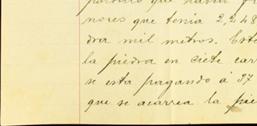 nores que tenia 2,2,48
dra mil metros. Este
la piedra en ciete car
se esta pagando á 37
que se acarrea la pie